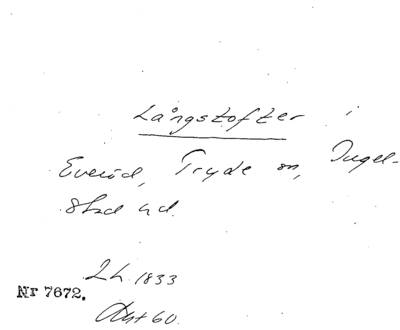 Långstofter i
Everöd, Tryde sn, Ingel-
stad hd.
2 h. 1833
Nr 7672.